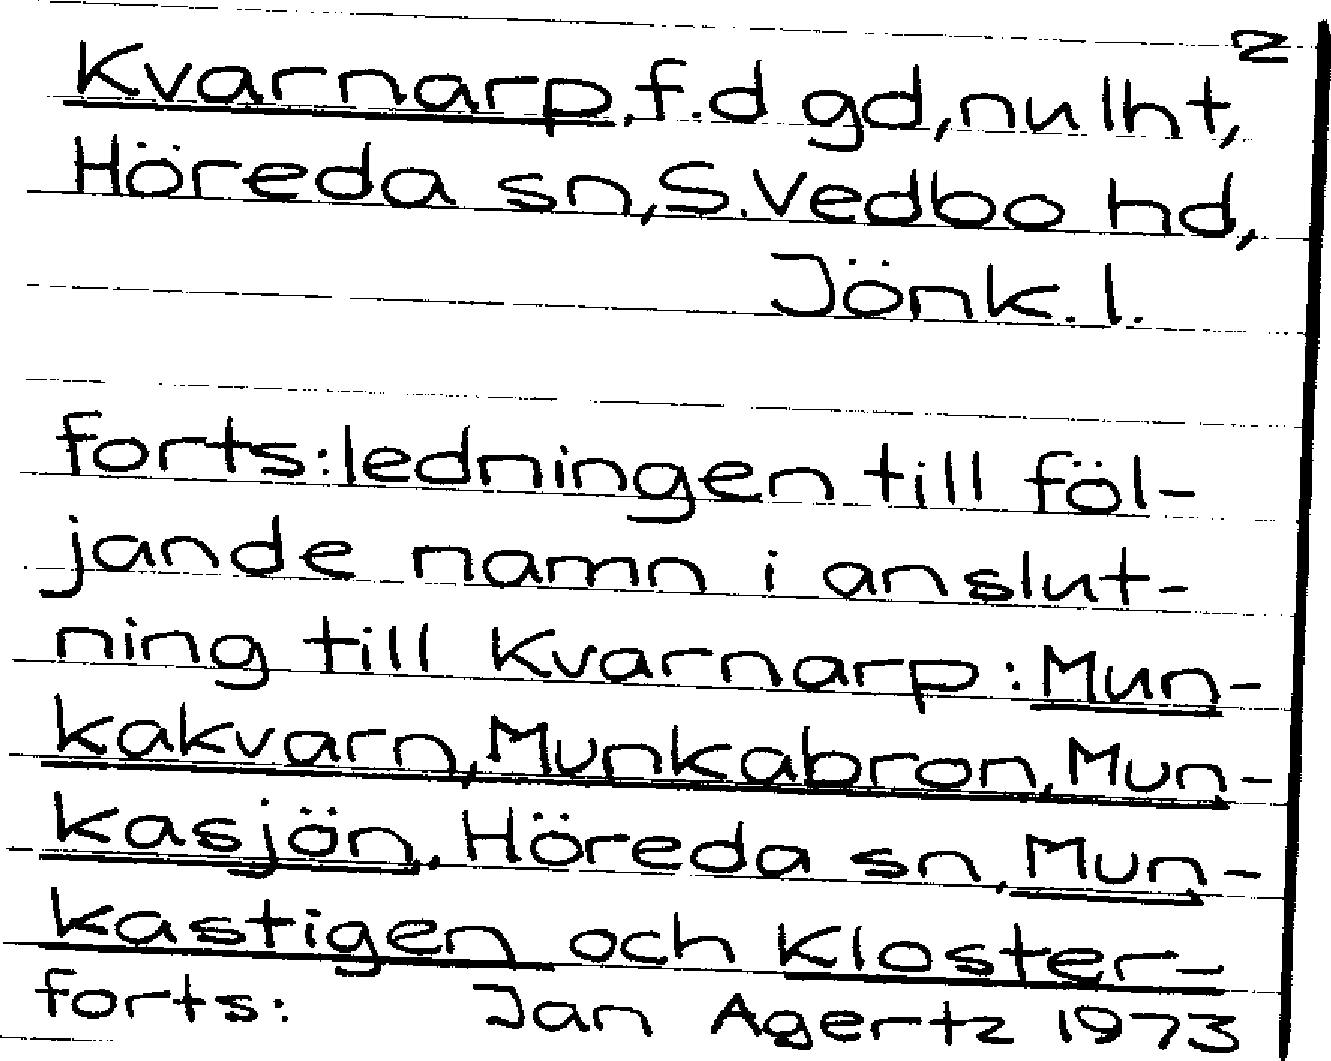 2
Kvarnarp, f.d gd, nu lht,
Höreda sn, S. Vedbo hd,
Jönk. l.
forts: ledningen till föl-
jande namn i anslut-
ning till Kvarnarp: Mun-
kakvarn, Munkabron, Mun-
kasjön, Höreda sn, Mun-
kastigen och Kloster-
forts: Jan Agertz 1973